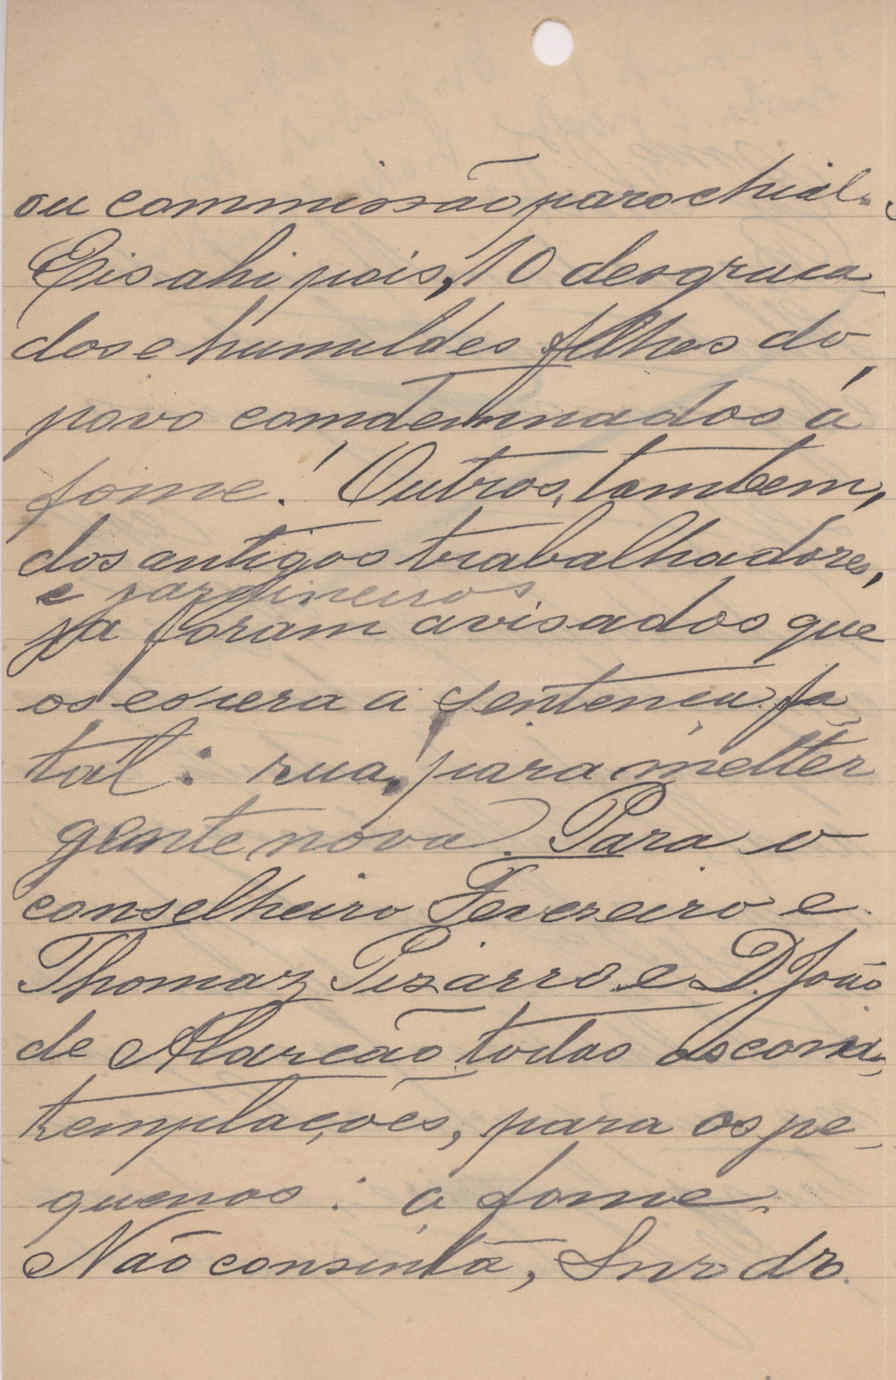 ou commissão parochial.
Eis ahi pois, 10 desgraca-
dos e humildes filhos do
povo comdemnados á
fome! Outros, tambem,
dos antigos trabalhadores,
e jardineiros
ja foram avisados que
os espera a sentença fa-
tal: rua, para metter
gente nova. Para o
conselheiro Fevereiro e
Thomaz Pizarro e D. João
de Alarcão todas as con-
templações, para os pe-
quenos: a fome.
Não consinta, Snr dr.